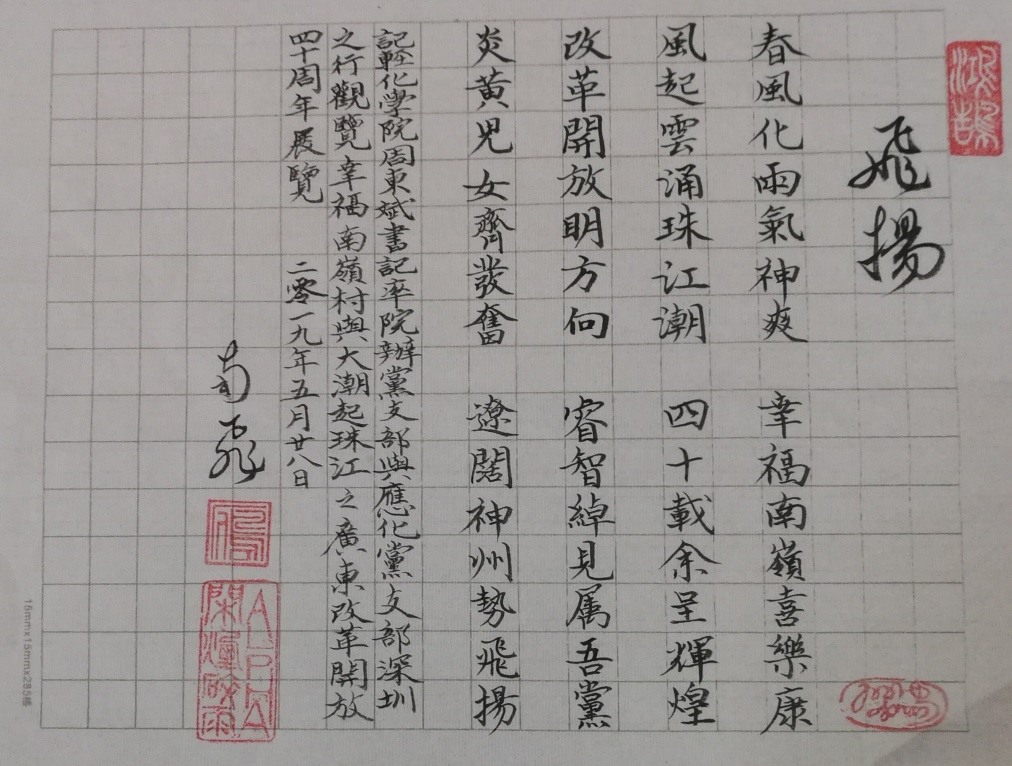 飛揚
春風化雨氣神爽 幸福南嶺喜樂康
風起雲涌珠江潮 四十載余呈輝煌
改革開放明方向 睿智綽見属吾黨
炎黃児女齊發奮 遼闊神州勢飛揚
記輕化学院周東斌書記率院辦黨支部與應化黨支部深圳
之行觀覽幸福南嶺村與大潮起珠江之廣東改革開放
四十周年展覽 二零一九年五月廿八日
南飛
鴻鵠
ALPHA
15mmx15mmx285格